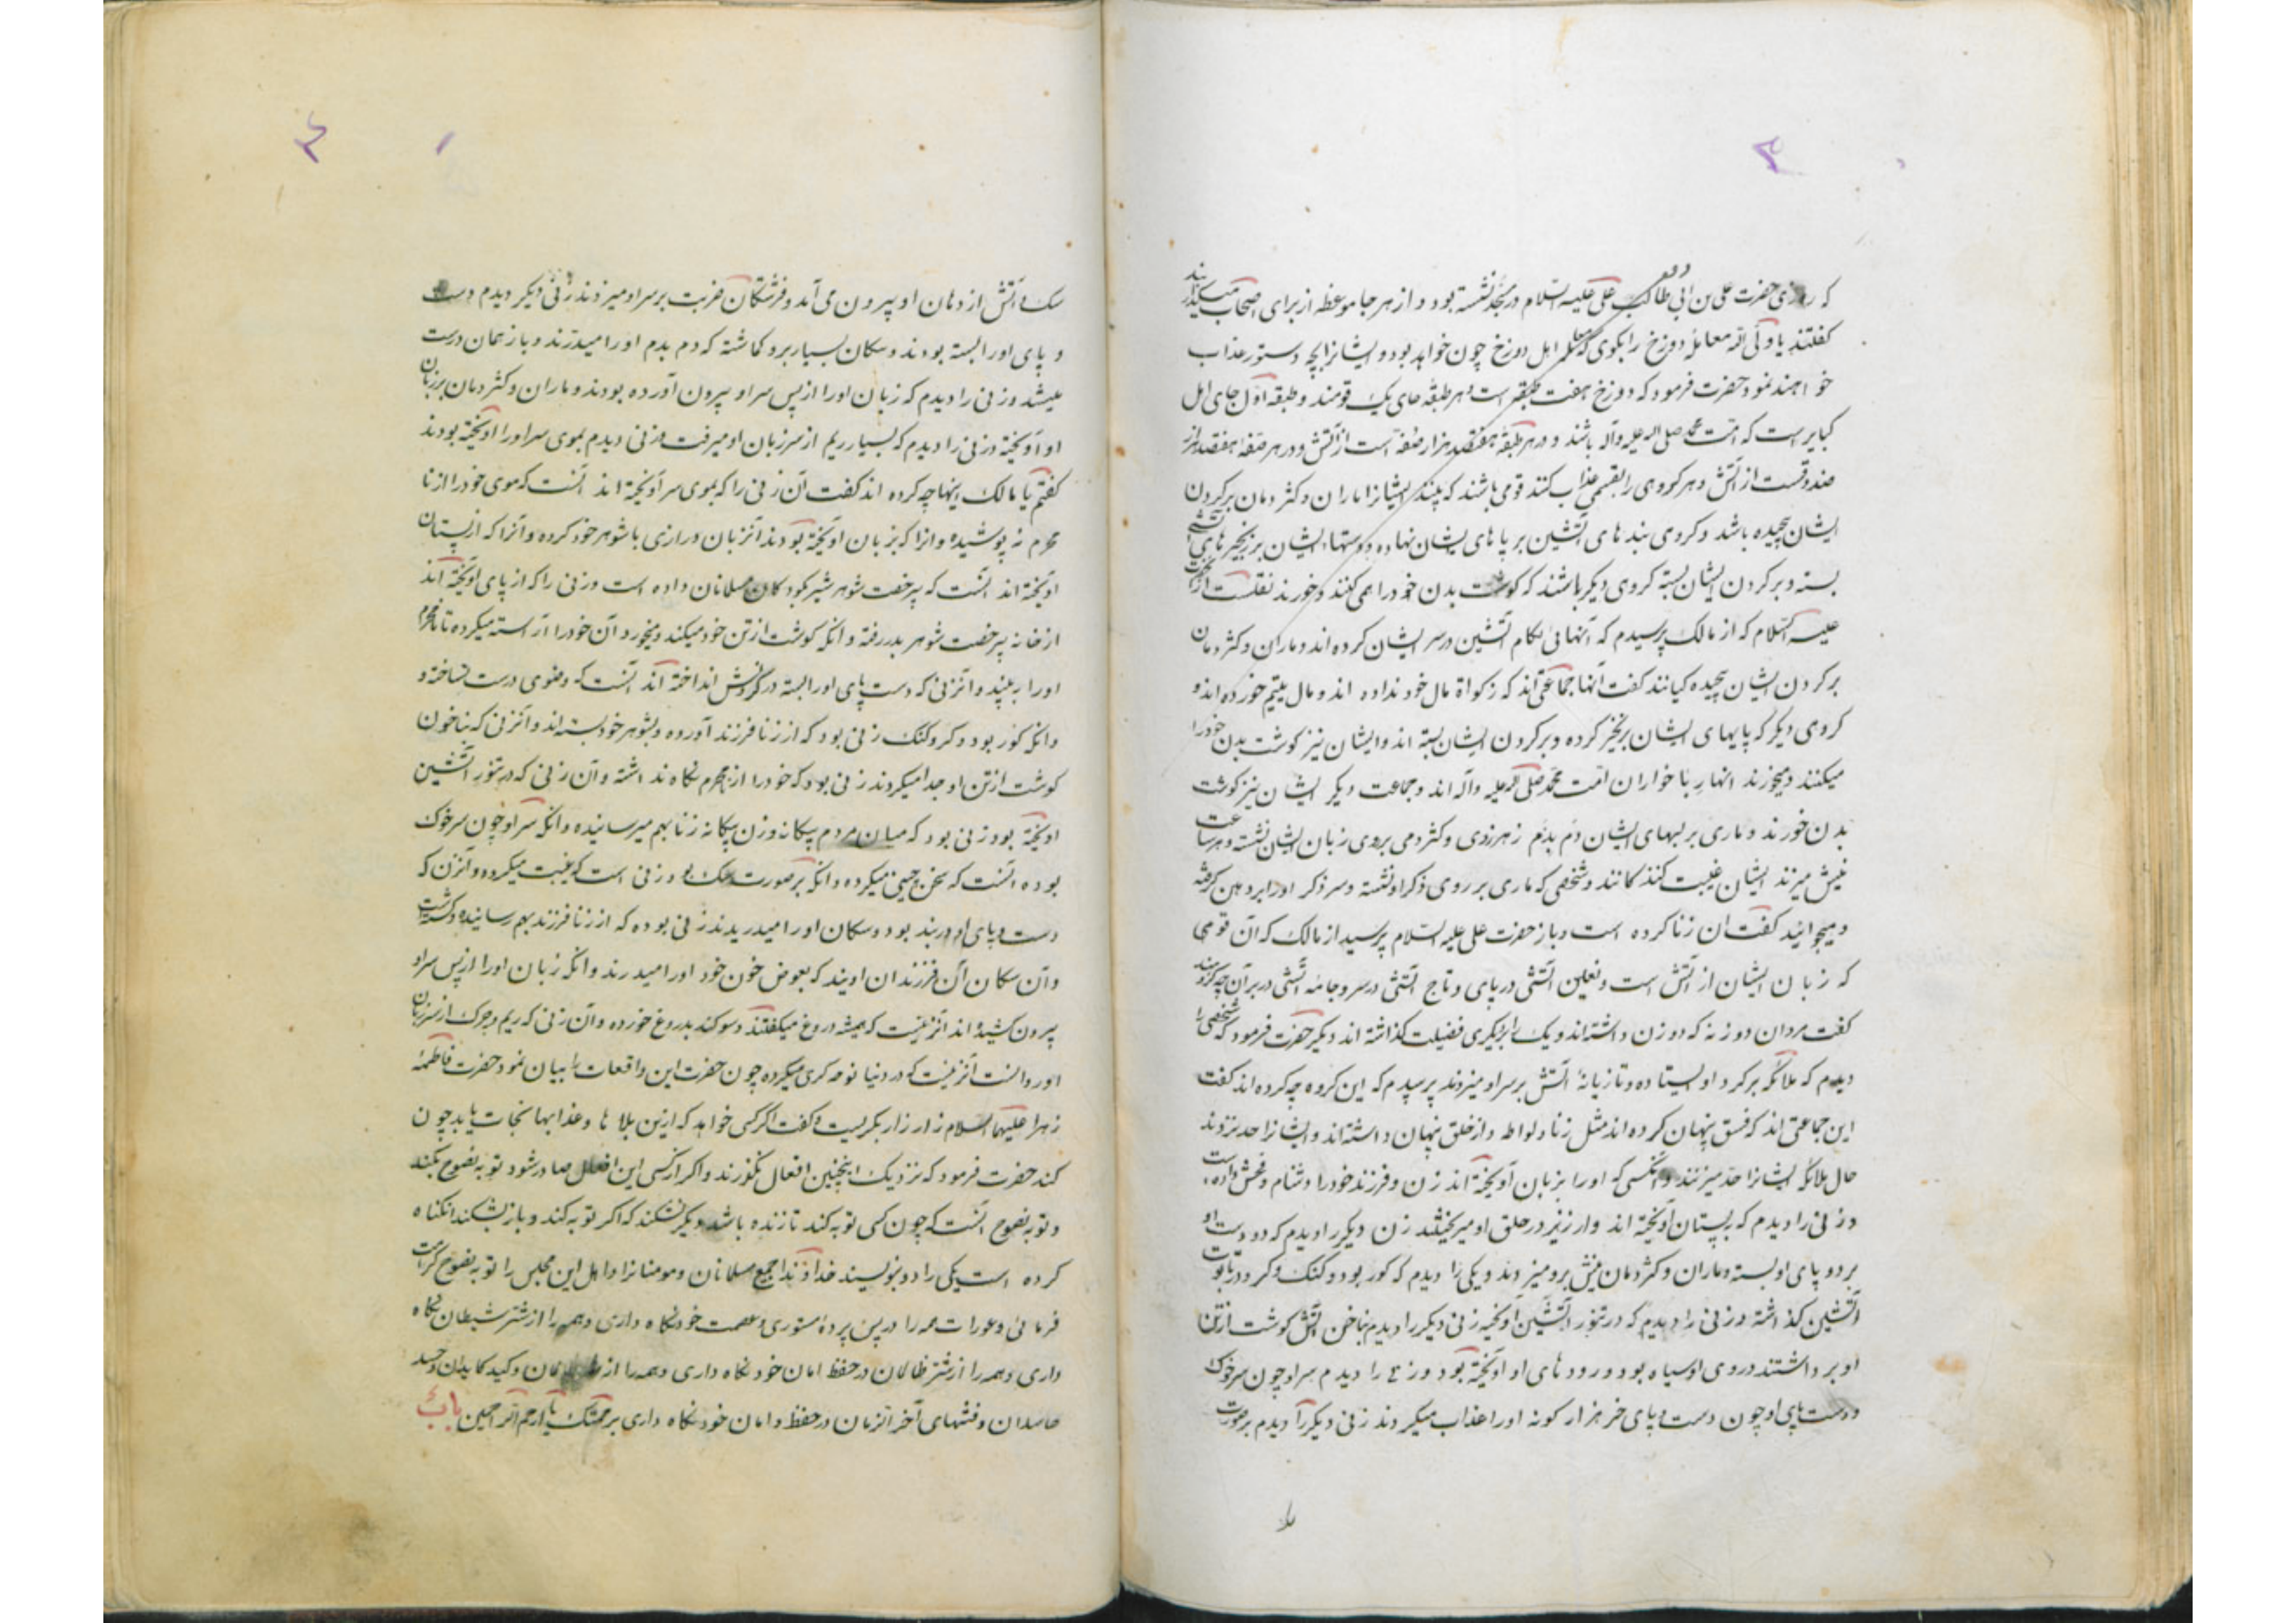 ۳
که روزی حضرت علی بن ابی طالب علی علیه السلام در مسجد نشسته بود و از هر جا موعظه از برای اصحاب
کفتند یا ولی الله معامله دوزخ را بکوی که اهل دوزخ چون خواهد بود و ایشانرا بچه دستور عذاب
خواهند نمود حضرت فرمود که دوزخ هفت طبقه است و هر طبقه جای یک قومند و طبقه اول جای اهل
کبایر است که امت محمد صلی الله علیه وآله باشند و در هر طبقه هفتصد هزار صفه است از آتش و در هر صفه هفتصد هزار
صندوقست از آتش و هر کروهی را بقسمی عذاب کنند قومی باشند که بینند ایشانرا ماران و کژدمان بر کردن
ایشان پیچیده باشد و کروهی بندهای آتشین بر پاهای ایشان نهاده و دستهاء ایشان بر زنجیرهای
بسته و بر کردن ایشان بسته کروهی دیکر باشند که کوشت بدن خود را همی کنند و خورند نقلست از
علیه السلام که از مالک پرسیدم که آنهائی لکام آتشین در سر ایشان کرده اند و ماران و کژدمان
بر کردن ایشان پیچیده کیانند کفت آنها جماعتی اند که زکواة مال خود نداده اند و مال یتیم خورده اند و
کروهی دیکر که پایهای ایشان بزنجیر کرده و بر کردن ایشان بسته اند و ایشان نیز کوشت بدن خود را
میکنند و میخورند انها ربا خواران امت محمد صلی الله علیه وآله اند و جماعت دیکر ایشان نیز کوشت
بدن خورند و ماری بر لبهای ایشان دم بدم زهر زدی و کژدمی بر روی زبان ایشان نشسته و هر ساعت
نیش میزند ایشان غیبت کنندکانند و شخصی که ماری بر روی ذکر او نشسته و سر ذکر او را بر دهن کرفته
و میجوانید کفت ان زنا کرده است و باز حضرت علی علیه السلام پرسید از مالک که آن قومی
که زبان ایشان از آتش است و نعلین آتشی در پای و تاج آتشی در سر و جامه آتشی در بر آن چه کردند
کفت مردان دو زنه که دو زن داشته اند و یک را بر یکری فضیلت کذاشته اند دیکر حضرت فرمود که شخصی را
دیدم که ملائکه بر کرد او ایستاده و تازیانهٔ آتش بر سر او میزدند پرسیدم که این کروه چه کرده اند کفت
این جماعتی اند که فسق پنهان کرده اند مثل زنا و لواطه و از خلق پنهان داشته اند و ایشانرا حد نزدند
حال ملائکه ایشانرا حد میزنند و آنکسی که او را بزبان آویخته اند زن و فرزند خود را دشنام و فحش داده است
و زنی را دیدم که بپستان آویخته اند و ارزیز در حلق او میریختند زن دیکر را دیدم که دو دست او
بر دو پای او بسته و ماران و کژدمان نیش برو میزدند و یکی را دیدم که کور بود و کنک و کر و در تابوت
آتشین کذاشته و زنی را دیدم که در تنور آتشین آویخته زنی دیکر را دیدم بناخن آتش کوشت از تن
او بر داشتند و روی او سیاه بود و رودهای او آویخته بود و زنی را دیدم سر او چون سر خوک
و دست و پای او چون دست و پای خر هزار کونه او را عذاب میکردند زنی دیکر را دیدم بر صورت
سک و آتش از دهان او بیرون می آمد و فرشتکان ضربت بر سر او میزدند زنی دیکر دیدم دست
و پای او را بسته بودند و سکان بسیار برو کماشته که دم بدم او را میدرند و باز همان درست
میشد و زنی را دیدم که زبان او را از پس سر او بیرون آورده بودند و ماران و کژدمان بر زبان
او آویخته و زنی را دیدم که بسیار ریم از سر زبان او میرفت و زنی دیدم بموی سر او را آویخته بودند
کفتم یا مالک اینها چه کرده اند کفت آن زنی را که بموی سر آویخته اند آنست که موی خود را از نا
محرم نه پوشیده و انرا که بزبان آویخته بودند آنزبان درازی با شوهر خود کرده و آنرا که از پستان
آویخته اند آنست که بیرخصت شوهر شیر بکودکان مسلمانان داده است و زنی را که از پای آویخته اند
از خانه بیرخصت شوهر بدر رفته و انکه کوشت از تن خود میکند و میخورد آن خود را آراسته میکرده تا نامحرم
او را ببیند و آنزنی که دست و پای او را بسته در کردنش انداخته اند آنست که وضوی درست نساخته و
وانکه کور بود و کر و کنک زنی بود که از زنا فرزند آورده و بشوهر خود بسته اند و آنزنی که بناخون
کوشت از تن او جدا میکردند زنی بود که خود را از محرم نکاه نداشته و آن زنی که در تنور آتشین
آویخته بود زنی بود که میان مردم بیکانه و زن بیکانه زنا بهم میرسانیده و انکه سر او چون سر خوک
بوده آنست که سخن چینی میکرده و انکه بر صورت سک بود زنی است که غیبت میکرده و آنزن که
دست و پای او در بند بود و سکان او را میدریدند زنی بوده که از زنا فرزند بهم رسانیده و کشته است
و آن سکان آن فرزندان اویند که بعوض خون خود او را میدرند و انکه زبان او را از پس سر او
بیرون کشیده اند آنزنیست که همیشه دروغ میکفتند و سوکند بدروغ خورده و آن زنی که ریم و چرک از سر زبان
او روانست آنزنیست که در دنیا نوحه کری میکرده چون حضرت این واقعات را بیان نمود حضرت فاطمهٔ
زهرا علیها السلام زار زار بکریست و کفت اکر کسی خواهد که ازین بلاها و عذابها نجات یابد چون
کند حضرت فرمود که نزدیک اینچنین افعال نکذرند و اکر از کسی این افعال صادر شود توبه نصوح بکند
و توبه نصوح آنست که چون کسی توبه کند تا زنده باشد دیکر نشکند که اکر توبه کند و باز بشکند انکناه
کرده است یکی را دو بنویسند خداوندا جمیع مسلمانان و مومنانرا و اهل این مجلس را توبه نصوح کرامت
فرمائی و عورات همه را در پس پردهٔ مستوری و عصمت خود نکاه داری و همه را از شر شیطان نکاه
داری و همه را از شر ظالمان در حفظ امان خود نکاه داری و همه را از و کید کایدان و حسد
حاسدان و فتنهای آخر الزمان در حفظ و امان خود نکاه داری برحمتک یا ارحم الراحمین باب